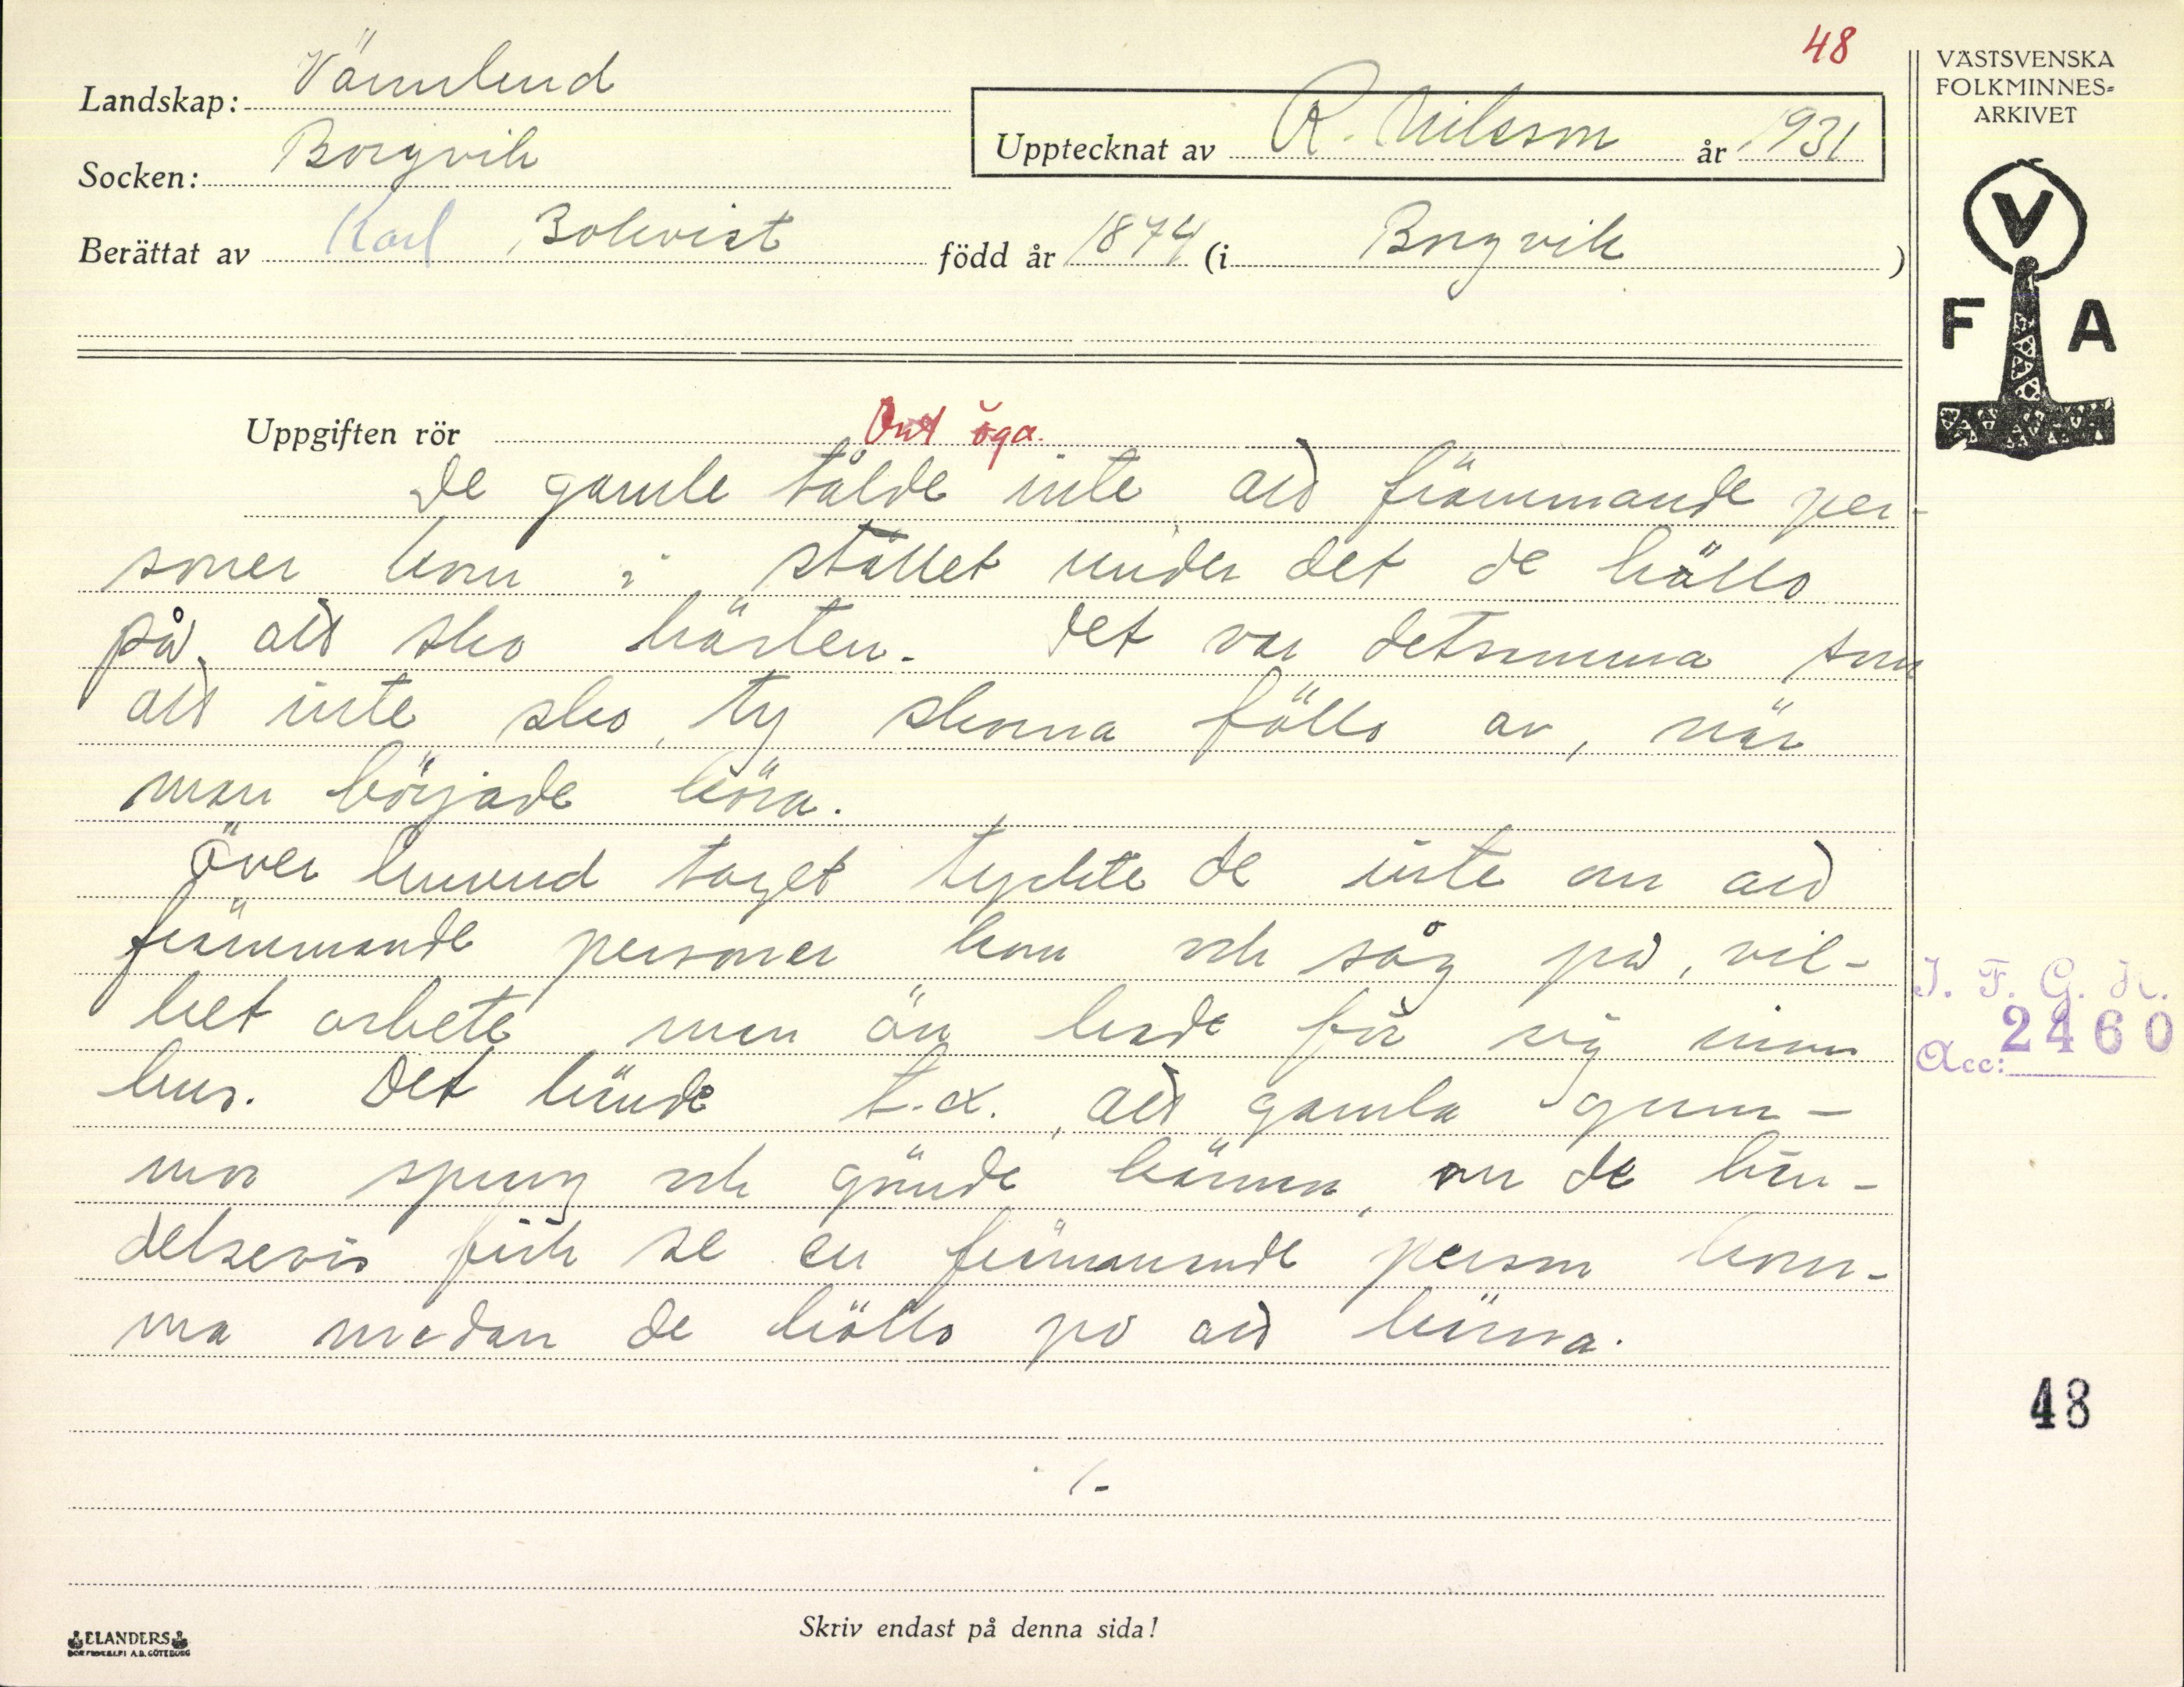 48
Landskap: Värmland
Socken: Borgvik
Upptecknat av R. Nilsson år 1931
Berättat av Karl Bokvist född år 1874 (i Borgvik )
VÄSTSVENSKA
FOLKMINNES-
ARKIVET
V
F A
Uppgiften rör Ont öga.
De gamle tålde inte att främmande per-
soner kom i stallet under det de höllo
på att sko hästen. Det var detsamma som
att inte sko, ty skorna föllo av, när
man började köra.
Över huvud taget tyckte de inte om att
främmande personer kom och såg på, vil-
ket arbete man än hade för sig inom
hus. Det hände t.ex., att gamla gum-
mor sprang och gömde kärnan, om de hän-
delsevis fick se en främmande person kom-
ma medan de höllo på att kärna.
/-
I. F. G. H.
Acc: 2460
48
Skriv endast på denna sida!
ELANDERS
BOKTRYCKERI A.B. GÖTEBORG